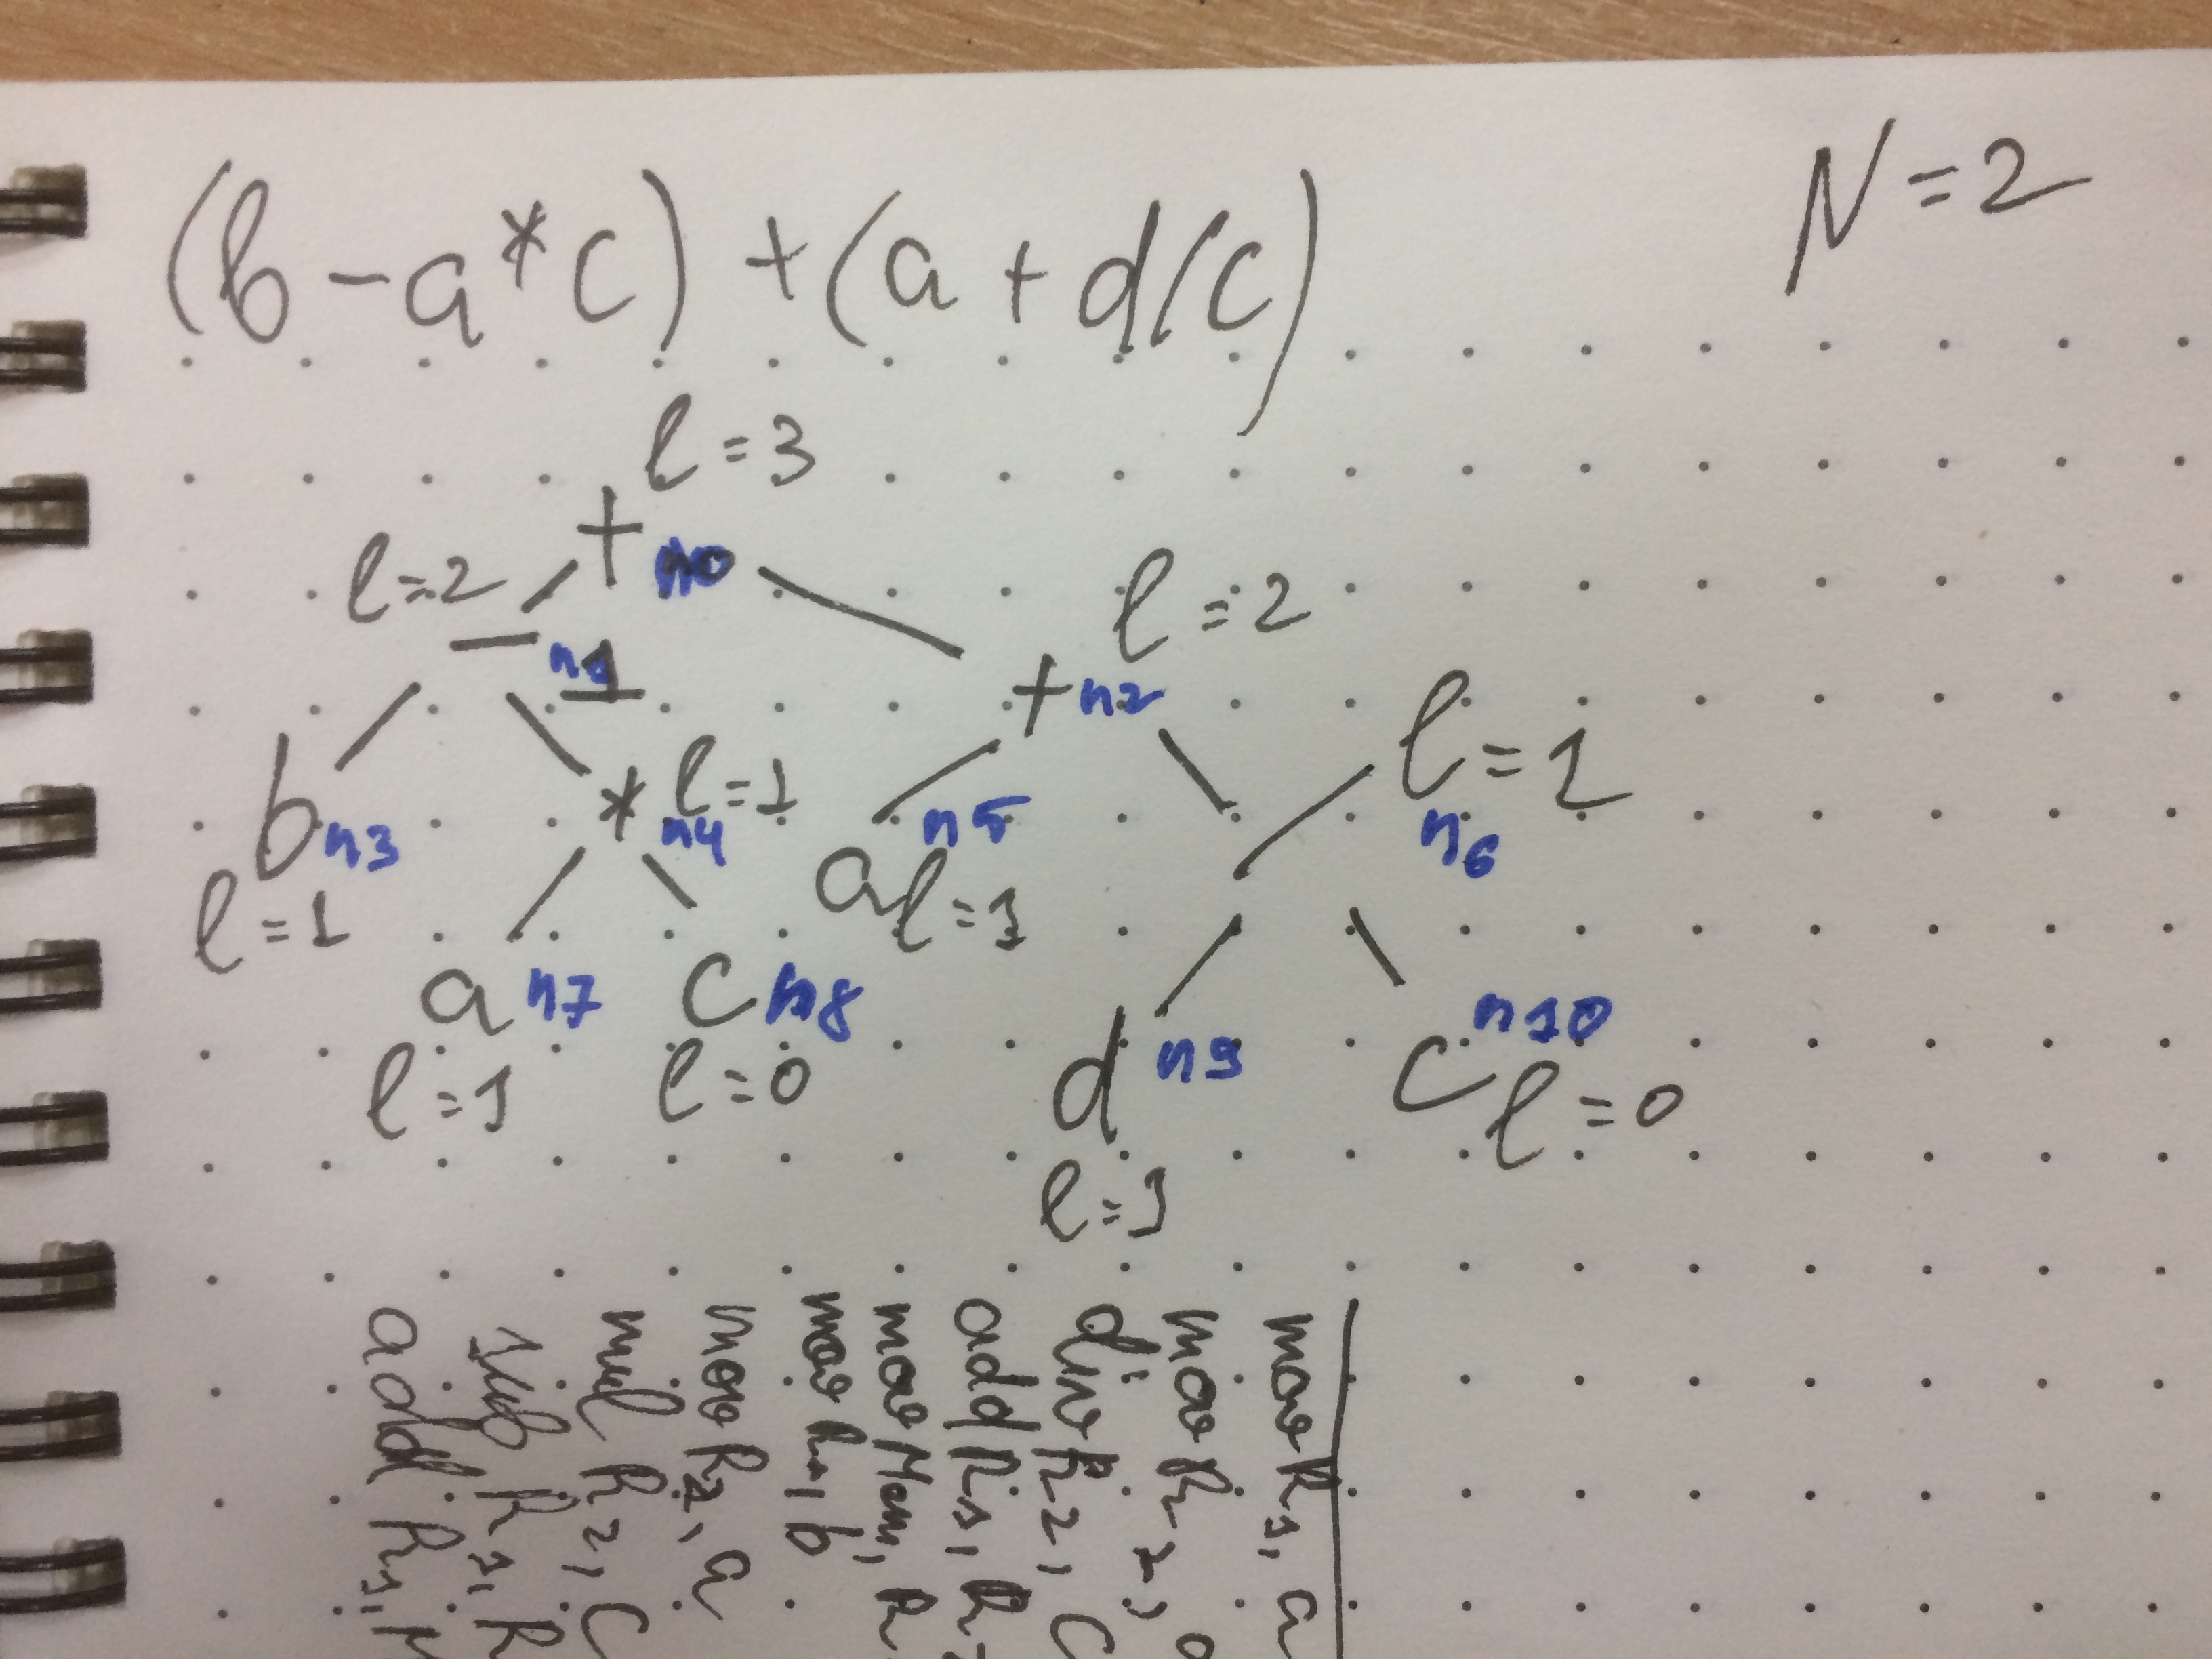 (b - a * c) + (a + d / c)
N = 2
l = 3
+ n0
l = 2
- n1
l = 2
+ n2
b n3
l = 1
* n4
l = 1
a n5
l = 1
/ n6
l = 1
a n7
l = 1
c n8
l = 0
d n9
l = 1
c n10
l = 0
mov R1, a
mov R2,
div R2, C
add R1, R2
mov Mem, R
mov R1, b
mov R2, a
mul R2, C
sub R1, R
add R1,